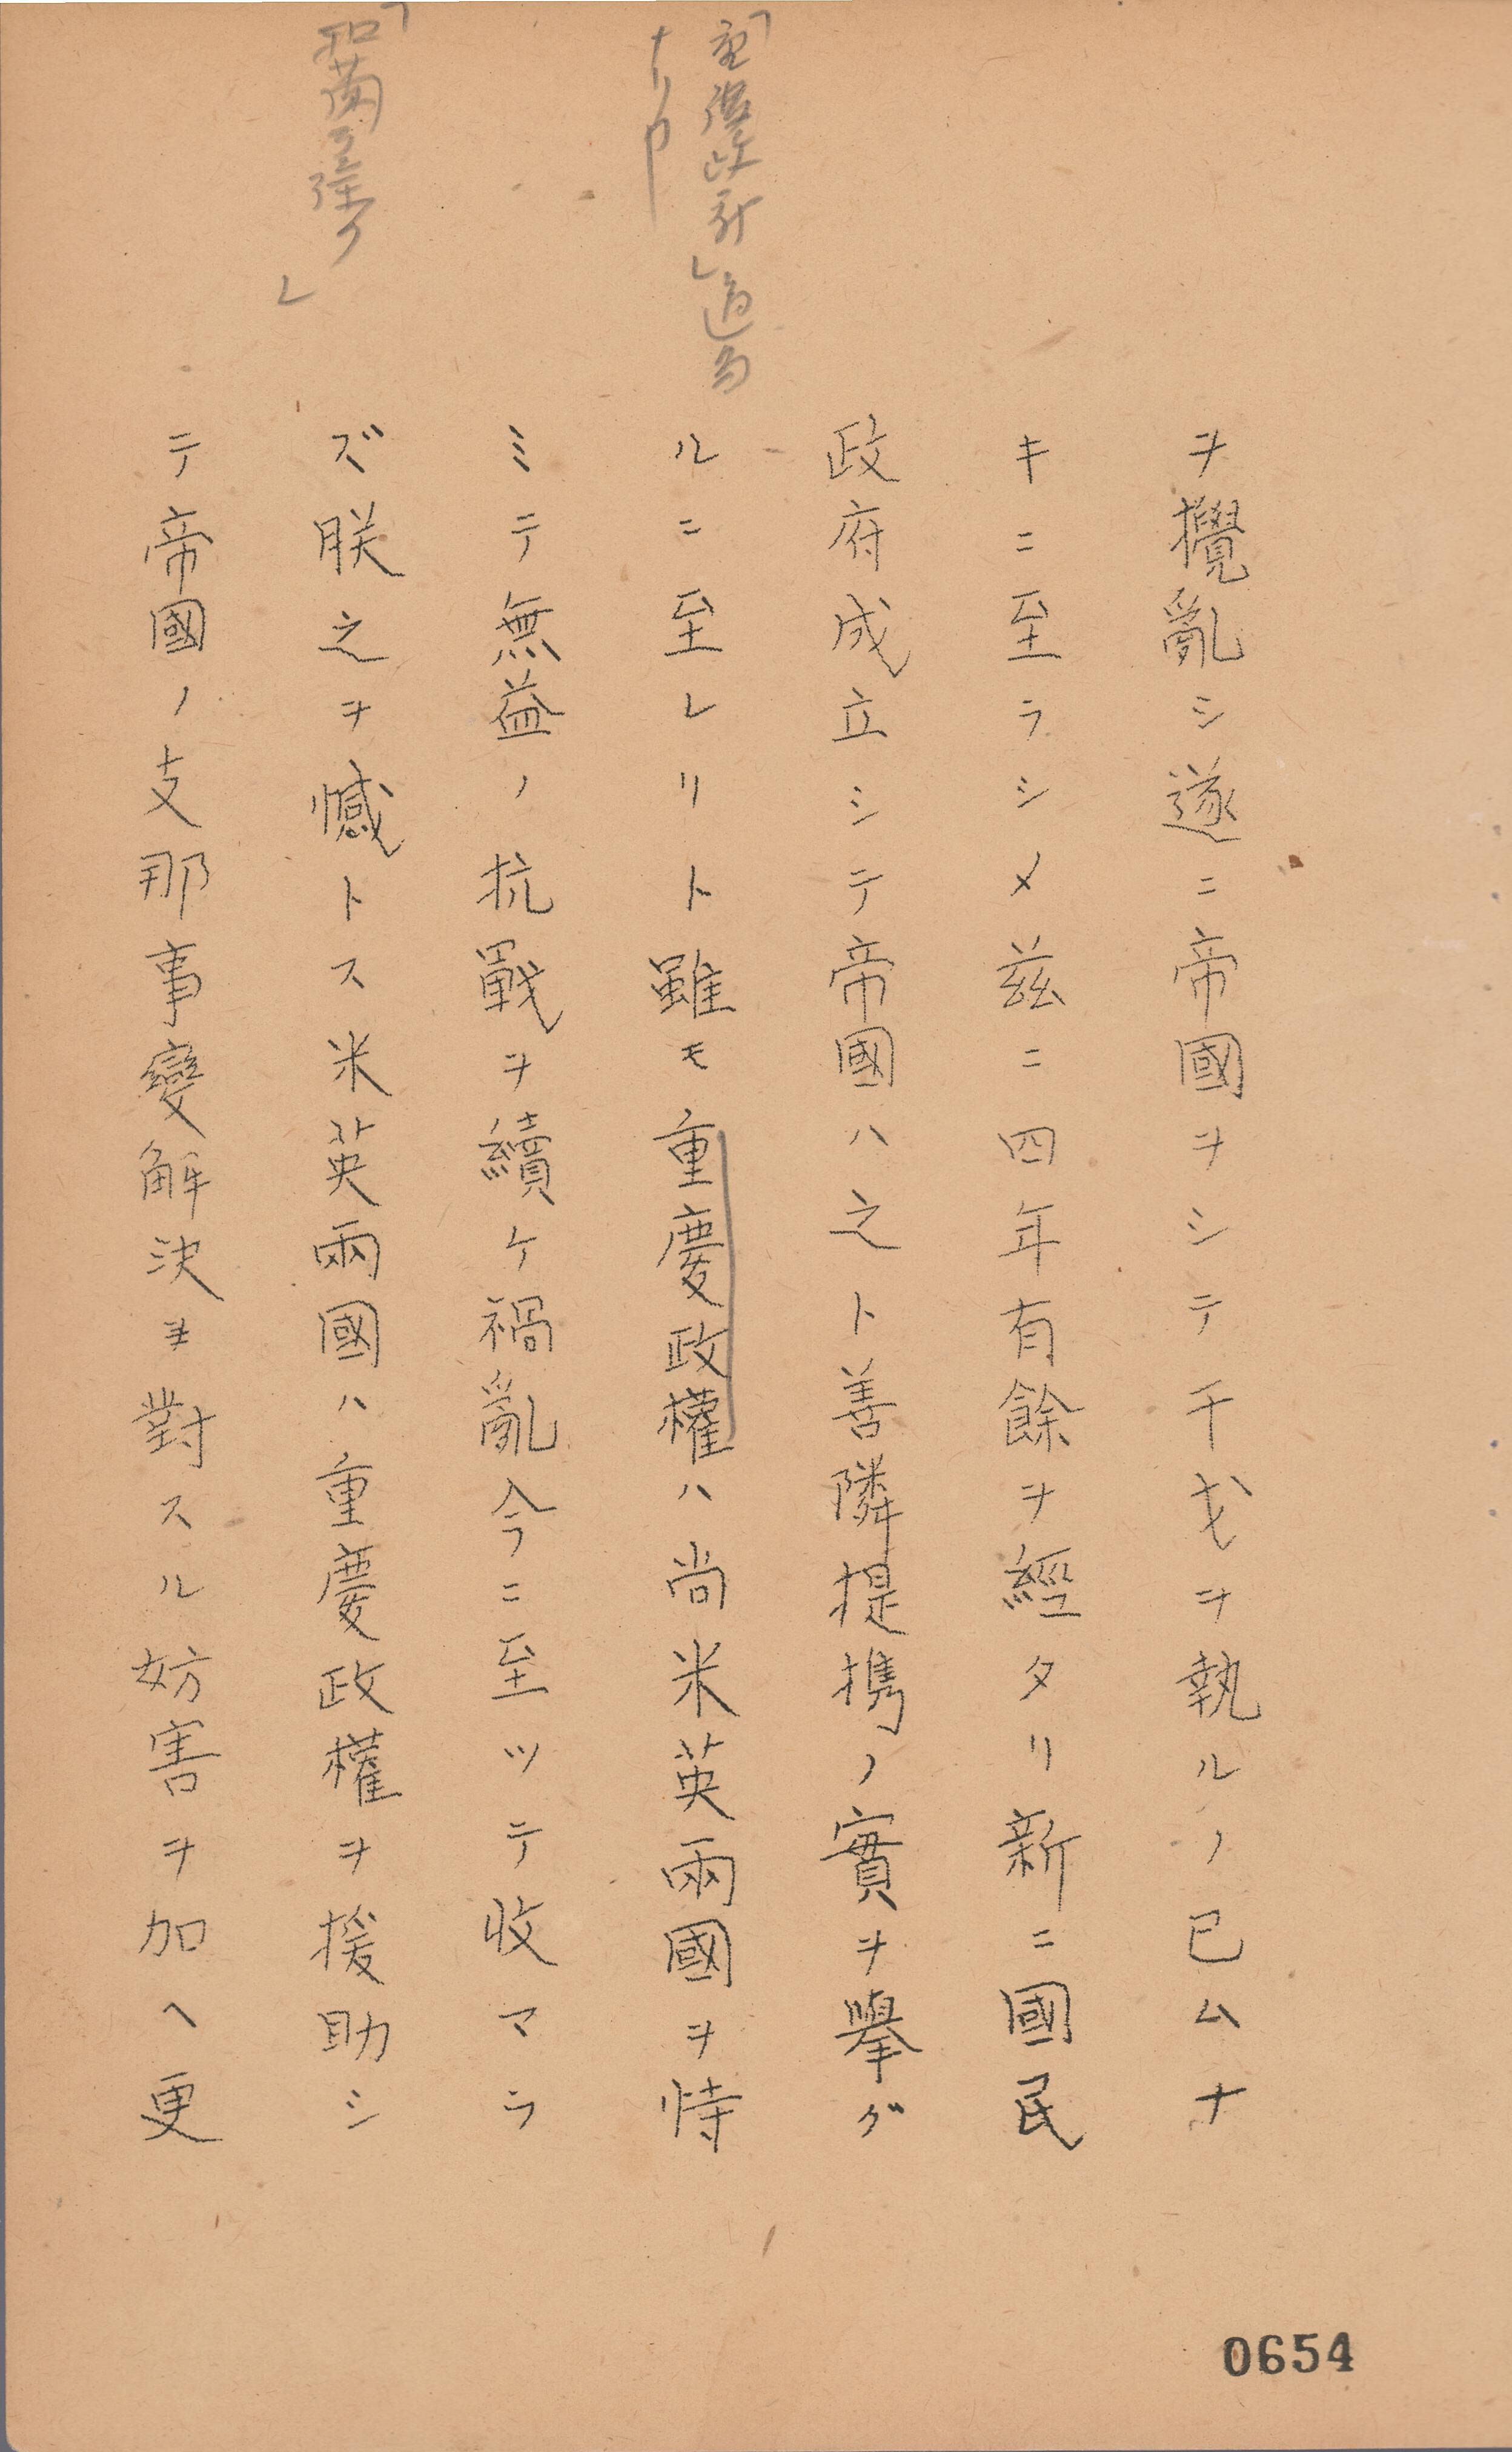 ヲ攪亂シ遂ニ帝國ヲシテ干戈ヲ執ルノ已ムナ
キニ至ラシメ茲ニ四年有餘ヲ經タリ新ニ國民
政府成立シテ帝國ハ之ト善隣提携ノ實ヲ擧グ
ルニ至レリト雖モ重慶政權ハ尚米英兩國ヲ恃
ミテ無益ノ抗戰ヲ續ケ禍亂今ニ至ツテ收マラ
ズ朕之ヲ憾トス米英兩國ハ重慶政權ヲ援助シ
テ帝國ノ支那事變解決ヨ對スル妨害ヲ加ヘ更
「重慶政權」適当
ナリヤ
「和蘭ヲ除ク」
0654